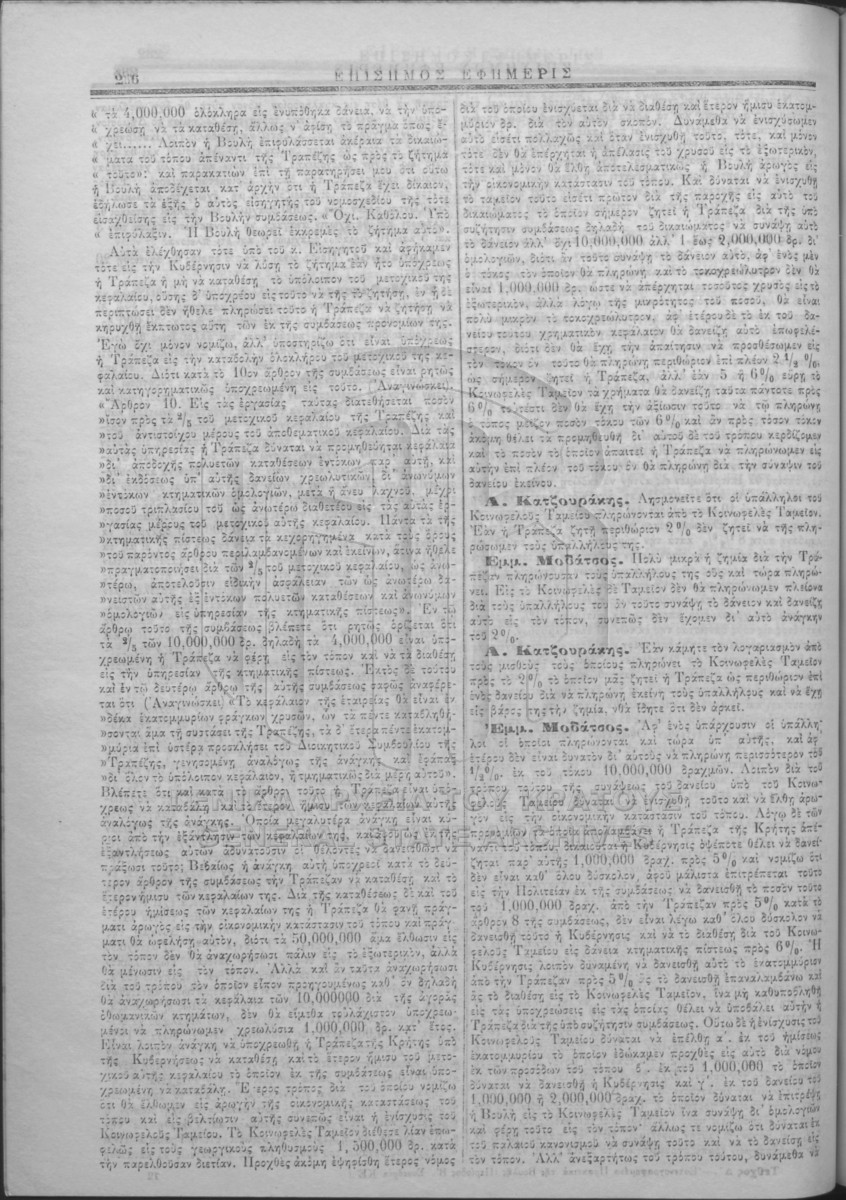 236 ΕΠΙΣΗΜΟΣ ΕΦΗΜΕΡΙΣ
« τὰ 4,000,000 ὁλόκληρα εἰς ἐνυπόθηκα δάνεια, νὰ τὴν ὑπο-
« χρεώσῃ νὰ τὰ καταθέσῃ, ἄλλως ν' ἀφίσῃ τὸ πρᾶγμα ὅπως ἔ-
« χει...... Λοιπὸν ἡ Βουλὴ ἐπιφυλάσσεται ἀκέραια τὰ δικαιώ-
« ματα τοῦ τόπου ἀπέναντι τῆς Τραπέζης ὡς πρὸς τὸ ζήτημα
« τοῦτο»: καὶ παρακατιὼν ἐπὶ τῇ παρατηρήσει μου ὅτι οὕτω
ἡ Βουλὴ ἀποδέχεται κατ' ἀρχὴν ὅτι ἡ Τράπεζα ἔχει δίκαιον,
ἐδήλωσε τὰ ἑξῆς ὁ αὐτὸς εἰσηγητὴς τοῦ νομοσχεδίου τῆς τότε
εἰσαχθείσης εἰς τὴν Βουλὴν συμβάσεως. «Ὄχι. Καθόλου. Ὑπὸ
« ἐπιφύλαξιν. Ἡ Βουλὴ θεωρεῖ ἐκκρεμὲς τὸ ζήτημα αὐτό».
Αὐτὰ ἐλέχθησαν τότε ὑπὸ τοῦ κ. Εἰσηγητοῦ καὶ ἀφήκαμεν
τότε εἰς τὴν Κυβέρνησιν νὰ λύσῃ τὸ ζήτημα ἐὰν ἦτο ὑπόχρεως
ἡ Τράπεζα ἢ μὴ νὰ καταθέσῃ τὸ ὑπόλοιπον τοῦ μετοχικοῦ της
κεφαλαίου, οὔσης δ' ὑποχρέου εἰς τοῦτο νὰ τῆς τὸ ζητήσῃ, ἐν ᾗ δὲ
περιπτώσει δὲν ἤθελε πληρώσει τοῦτο ἡ Τράπεζα νὰ ζητήσῃ νὰ
κηρυχθῇ ἔκπτωτος αὕτη τῶν ἐκ τῆς συμβάσεως προνομίων της.
Ἐγὼ ὄχι μόνον νομίζω, ἀλλ' ὑποστηρίζω ὅτι εἶναι ὑπόχρεως
ἡ Τράπεζα εἰς τὴν καταβολὴν ὁλοκλήρου τοῦ μετοχικοῦ της κε-
φαλαίου. Διότι κατὰ τὸ 10ον ἄρθρον τῆς συμβάσεως εἶναι ῥητῶς
καὶ κατηγορηματικῶς ὑποχρεωμένη εἰς τοῦτο. (Ἀναγινώσκει)
« Ἄρθρον 10. Εἰς τὰς ἐργασίας ταύτας διατεθήσεται ποσὸν
»ἴσον πρὸς τὰ 2/5 τοῦ μετοχικοῦ κεφαλαίου τῆς Τραπέζης καὶ
»τοῦ ἀντιστοίχου μέρους τοῦ ἀποθεματικοῦ κεφαλαίου. Διὰ τὰς
»αὐτὰς ὑπηρεσίας ἡ Τράπεζα δύναται νὰ προμηθεύηται κεφάλαια
»δι' ἀποδοχῆς πολυετῶν καταθέσεων ἐντόκων παρ' αὐτῇ, καὶ
»δι' ἐκδόσεως ὑπ' αὐτῆς δανείων χρεωλυτικῶν δι' ἀνωνύμων
»ἐντόκων κτηματικῶν ὁμολογιῶν, μετὰ ἢ ἄνευ λαχνοῦ, μέχρι
»ποσοῦ τριπλασίου τοῦ ὡς ἀνωτέρω διαθετέου εἰς τὰς αὐτὰς ἐρ-
»γασίας μέρους τοῦ μετοχικοῦ αὐτῆς κεφαλαίου. Πάντα τὰ τῆς
»κτηματικῆς πίστεως δάνεια τὰ κεχορηγημένα κατὰ τοὺς ὅρους
»τοῦ παρόντος ἄρθρου περιλαμβανομένων καὶ ἐκείνων, ἅτινα ἤθελε
»πραγματοποιήσει διὰ τῶν 2/5 τοῦ μετοχικοῦ κεφαλαίου, ὡς ἀνω-
»τέρω, ἀποτελοῦσιν εἰδικὴν ἀσφάλειαν τῶν ὡς ἀνωτέρω δα-
»νειστῶν αὐτῆς ἐξ ἐντόκων πολυετῶν καταθέσεων καὶ ἀνωνύμων
»ὁμολογιῶν εἰς ὑπηρεσίαν τῆς κτηματικῆς πίστεως». Ἐν τῷ
ἄρθρῳ τοῦτο τῆς συμβάσεως βλέπετε ὅτι ῥητῶς ὁρίζεται ὅτι
τὰ 2/5 τῶν 10,000,000 δρ. δηλαδὴ τὰ 4,000,000 εἶναι ὑπο-
χρεωμένη ἡ Τράπεζα νὰ φέρῃ εἰς τὸν τόπον καὶ νὰ τὰ διαθέσῃ
εἰς τὴν ὑπηρεσίαν τῆς κτηματικῆς πίστεως. Ἐκτὸς δὲ τούτου
καὶ ἐν τῷ δευτέρῳ ἄρθρῳ τῆς αὐτῆς συμβάσεως σαφῶς ἀναφέρε-
ται ὅτι (Ἀναγινώσκει) «Τὸ κεφάλαιον τῆς ἑταιρείας θὰ εἶναι ἐν
»δέκα ἑκατομμυρίων φράγκων χρυσῶν, ὧν τὰ πέντε καταβληθή-
»σονται ἅμα τῇ συστάσει τῆς Τραπέζης, τὰ δ' ἕτερα πέντε ἑκατομ-
»μύρια ἐπὶ ὑστέρᾳ προσκλήσει τοῦ Διοικητικοῦ Συμβουλίου τῆς
»Τραπέζης, γενησομένῃ ἀναλόγως τῆς ἀνάγκης καὶ ἐφάπαξ
»δι' ὅλον τὸ ὑπόλοιπον κεφάλαιον, ἢ τμηματικῶς διὰ μέρη αὐτοῦ».
Βλέπετε ὅτι καὶ κατὰ τὸ ἄρθρον τοῦτο ἡ Τράπεζα εἶναι ὑπό-
χρεως νὰ καταβάλῃ καὶ τὸ ἕτερον ἥμισυ τῶν κεφαλαίων αὐτῆς
ἀναλόγως τῆς ἀνάγκης. Ὁποία μεγαλυτέρα ἀνάγκη εἶναι κύ-
ριοι ἀπὸ τὴν ἐξάντλησιν τῶν κεφαλαίων της, καὶ ἀφοῦ ὡς ἐκ τῆς
ἐξαντλήσεως αὐτῶν ἀδυνατοῦσιν οἱ θέλοντες νὰ δανεισθῶσι νὰ
πράξωσι τοῦτο; Βεβαίως ἡ ἀνάγκη αὐτὴ ὑποχρεοῖ κατὰ τὸ δεύ-
τερον ἄρθρον τῆς συμβάσεως τὴν Τράπεζαν νὰ καταθέσῃ καὶ τὸ
ἕτερον ἥμισυ τῶν κεφαλαίων της. Διὰ τῆς καταθέσεως δὲ καὶ τοῦ
ἑτέρου ἡμίσεως τῶν κεφαλαίων της ἡ Τράπεζα θὰ φανῇ πράγ-
ματι ἀρωγὸς εἰς τὴν οἰκονομικὴν κατάστασιν τοῦ τόπου καὶ πράγ-
ματι θὰ ὠφελήσῃ αὐτόν, διότι τὰ 50,000,000 ἅμα ἔλθωσιν εἰς
τὸν τόπον δὲν θὰ ἀναχωρήσωσι πάλιν εἰς τὸ ἐξωτερικόν, ἀλλὰ
θὰ μένωσιν εἰς τὸν τόπον. Ἀλλὰ καὶ ἂν ταῦτα ἀναχωρήσωσι
διὰ τοῦ τρόπου τὸν ὁποῖον εἶπον προηγουμένως καθ' ὃν δηλαδὴ
θὰ ἀναχωρήσωσι τὰ κεφάλαια τῶν 10,000000 διὰ τῆς ἀγορᾶς
ὀθωμανικῶν κτημάτων, δὲν θὰ εἴμεθα τοὐλάχιστον ὑποχρεω-
μένοι νὰ πληρώνωμεν χρεωλύσια 1,000,000 δρ. κατ' ἔτος.
Εἶναι λοιπὸν ἀνάγκη νὰ ὑποχρεωθῇ ἡ Τράπεζα τῆς Κρήτης ὑπὸ
τῆς Κυβερνήσεως νὰ καταθέσῃ καὶ τὸ ἕτερον ἥμισυ τοῦ μετο-
χικοῦ αὐτῆς κεφαλαίου τὸ ὁποῖον ἐκ τῆς συμβάσεως εἶναι ὑπο-
χρεωμένη νὰ καταβάλῃ. Ἕτερος τρόπος διὰ τοῦ ὁποίου νομίζω
ὅτι θὰ ἔλθωμεν εἰς ἀρωγὴν τῆς οἰκονομικῆς καταστάσεως τοῦ
τόπου καὶ εἰς βελτίωσιν αὐτῆς συνεπῶς εἶναι ἡ ἐνίσχυσις τοῦ
Κοινωφελοῦς Ταμείου. Τὸ Κοινωφελὲς Ταμεῖον διέθεσε λίαν ἐπω-
φελῶς εἰς τοὺς γεωργικοὺς πληθυσμοὺς 1,500,000 δρ. κατὰ
τὴν παρελθοῦσαν διετίαν. Προχθὲς ἀκόμη ἐψηφίσθη ἕτερος νόμος
διὰ τοῦ ὁποίου ἐνισχύεται διὰ νὰ διαθέσῃ καὶ ἕτερον ἥμισυ ἑκατομ-
μύριον δρ. διὰ τὸν αὐτὸν σκοπόν. Δυνάμεθα νὰ ἐνισχύσωμεν
αὐτὸ εἰσέτι πολλαχῶς καὶ ὅταν ἐνισχυθῇ τοῦτο, τότε, καὶ μόνον
τότε δὲν θὰ ἐπέρχηται ἡ ἀπέλασις τοῦ χρυσοῦ εἰς τὸ ἐξωτερικόν,
τότε καὶ μόνον θὰ ἔλθῃ ἀποτελεσματικῶς ἡ Βουλὴ ἀρωγὸς εἰς
τὴν οἰκονομικὴν κατάστασιν τοῦ τόπου. Καὶ δύναται νὰ ἐνισχυθῇ
τὸ ταμεῖον τοῦτο εἰσέτι πρῶτον διὰ τῆς παροχῆς εἰς αὐτὸ τοῦ
δικαιώματος τὸ ὁποῖον σήμερον ζητεῖ ἡ Τράπεζα διὰ τῆς ὑπὸ
συζήτησιν συμβάσεως δηλαδὴ τοῦ δικαιώματος νὰ συνάψῃ αὐτὸ
τὸ δάνειον ἀλλ' ὄχι 10,000,000 ἀλλ' 1 ἕως 2,000,000 δρ. δι'
ὁμολογιῶν, διότι ἂν τοῦτο συνάψῃ τὸ δάνειον αὐτό, ἀφ' ἑνὸς μὲν
ὁ τόκος τὸν ὁποῖον θὰ πληρώνῃ καὶ τὸ τοκοχρεώλυτρον δὲν θὰ
εἶναι 1,000,000 δρ. ὥστε νὰ ἀπέρχηται τοσοῦτος χρυσὸς εἰς τὸ
ἐξωτερικόν, ἀλλὰ λόγῳ τῆς μικρότητος τοῦ ποσοῦ, θὰ εἶναι
πολὺ μικρὸν τὸ τοκοχρεώλυτρον, ἀφ' ἑτέρου δὲ τὸ ἐκ τοῦ δα-
νείου τούτου χρηματικὸν κεφάλαιον θὰ δανείζῃ αὐτὸ ἐπωφελέ-
στερον, διότι δὲν θὰ ἔχῃ τὴν ἀπαίτησιν νὰ προσθέσωμεν εἰς
τὸν τόκον ὃν τοῦτο θὰ πληρώνῃ περιθώριον ἐπὶ πλέον 2 1/2 0/0,
ὡς σήμερον ζητεῖ ἡ Τράπεζα, ἀλλ' ἐὰν 5 ἢ 6 0/0 εὕρῃ τὸ
Κοινωφελὲς Ταμεῖον τὰ χρήματα θὰ δανείζῃ ταῦτα πάντοτε πρὸς
6 0/0 τουτέστι δὲν θὰ ἔχῃ τὴν ἀξίωσιν τοῦτο νὰ τῷ πληρώνῃ
ὁ τόπος μεῖζον ποσὸν τόκου τῶν 6 0/0 καὶ ἂν πρὸς τόσον τόκον
ἀκόμη θέλει τὰ προμηθευθῇ δι' αὐτοῦ δὲ τοῦ τρόπου κερδίζομεν
καὶ τὸ ποσὸν τὸ ὁποῖον ἀπαιτεῖ ἡ Τράπεζα νὰ πληρώνωμεν εἰς
αὐτὴν ἐπὶ πλέον τοῦ τόκου ὃν θὰ πληρώνῃ διὰ τὴν σύναψιν τοῦ
δανείου ἐκείνου.
Α. Κατζουράκης. Λησμονεῖτε ὅτι οἱ ὑπάλληλοι τοῦ
Κοινωφελοῦς Ταμείου πληρώνονται ἀπὸ τὸ Κοινωφελὲς Ταμεῖον.
Ἐὰν ἡ Τράπεζα ζητῇ περιθώριον 2 0/0 δὲν ζητεῖ νὰ τῆς πλη-
ρώσωμεν τοὺς ὑπαλλήλους της.
Ἐμμ. Μοδάτσος. Πολὺ μικρὰ ἡ ζημία διὰ τὴν Τρά-
πεζαν πληρώνουσαν τοὺς ὑπαλλήλους της οὓς καὶ τώρα πληρώ-
νει. Εἰς τὸ Κοινωφελὲς δὲ Ταμεῖον δὲν θὰ πληρώνωμεν πλείονα
διὰ τοὺς ὑπαλλήλους του ἂν τοῦτο συνάψῃ τὸ δάνειον καὶ δανείζῃ
αὐτὸ εἰς τὸν τόπον, συνεπῶς δὲν ἔχομεν δι' αὐτὸ ἀνάγκην
τοῦ 2 0/0.
Α. Κατζουράκης. Ἐὰν κάμητε τὸν λογαριασμὸν ἀπὸ
τοὺς μισθοὺς τοὺς ὁποίους πληρώνει τὸ Κοινωφελὲς Ταμεῖον
πρὸς τὸ 2 0/0 τὸ ὁποῖον μᾶς ζητεῖ ἡ Τράπεζα ὡς περιθώριον ἐπὶ
ἑνὸς δανείου διὰ νὰ πληρώνῃ ἐκείνη τοὺς ὑπαλλήλους καὶ νὰ ἔχῃ
εἰς βάρος της τὴν ζημία, νὰ ἴδητε ὅτι δὲν ἀρκεῖ.
Ἐμμ. Μοδάτσος. Ἀφ' ἑνὸς ὑπάρχουσιν οἱ ὑπάλλη-
λοι οἱ ὁποῖοι πληρώνονται καὶ τώρα ὑπ' αὐτῆς, καὶ ἀφ'
ἑτέρου δὲν εἶναι δυνατὸν δι' αὐτοὺς νὰ πληρώνῃ περισσότερον τοῦ
1/2 0/0 ἐκ τοῦ τόκου 10,000,000 δραχμῶν. Λοιπὸν διὰ τοῦ
τρόπου τούτου τῆς συνάψεως τοῦ δανείου ὑπὸ τοῦ Κοινω-
φελοῦς Ταμείου δύναται νὰ ἐνισχυθῇ τοῦτο καὶ νὰ ἔλθῃ ἀρω-
γὸν εἰς τὴν οἰκονομικὴν κατάστασιν τοῦ τόπου. Λόγῳ δὲ τῶν
προνομίων τὰ ὁποῖα ἀπολαμβάνει ἡ Τράπεζα τῆς Κρήτης ἀπέ-
ναντι τοῦ τόπου, δικαιοῦται ἡ Κυβέρνησις ὁψέποτε θέλει νὰ δανεί-
ζηται παρ' αὐτῆς 1,000,000 δραχ. πρὸς 5 0/0 καὶ νομίζω ὅτι
δὲν εἶναι καθ' ὅλου δύσκολον, ἀφοῦ μάλιστα ἐπιτρέπεται τοῦτο
εἰς τὴν Πολιτείαν ἐκ τῆς συμβάσεως νὰ δανεισθῇ τὸ ποσὸν τοῦτο
τοῦ 1,000,000 δραχ. ἀπὸ τὴν Τράπεζαν πρὸς 5 0/0 κατὰ τὸ
ἄρθρον 8 τῆς συμβάσεως, δὲν εἶναι λέγω καθ' ὅλου δύσκολον νὰ
δανεισθῇ τοῦτο ἡ Κυβέρνησις καὶ νὰ τὸ διαθέσῃ διὰ τοῦ Κοινω-
φελοῦς Ταμείου εἰς δάνεια κτηματικῆς πίστεως πρὸς 6 0/0. Ἡ
Κυβέρνησις λοιπὸν δυναμένη νὰ δανεισθῇ αὐτὸ τὸ ἑκατομμύριον
ἀπὸ τὴν Τράπεζαν πρὸς 5 0/0 ἂς τὸ δανεισθῇ ἐπαναλαμβάνω καὶ
ἂς τὸ διαθέσῃ εἰς τὸ Κοινωφελὲς Ταμεῖον, ἵνα μὴ καθυποβληθῇ
εἰς τὰς ὑποχρεώσεις εἰς τὰς ὁποίας θέλει νὰ ὑποβάλει αὐτὴν ἡ
Τράπεζα διὰ τῆς ὑπὸ συζήτησιν συμβάσεως. Οὕτω δὲ ἡ ἐνίσχυσις τοῦ
Κοινωφελοῦς Ταμείου δύναται νὰ ἐπέλθῃ α'. ἐκ τοῦ ἡμίσεως
ἑκατομμυρίου τὸ ὁποῖον ἐδώκαμεν προχθὲς εἰς αὐτὸ διὰ νόμου
ἐκ τῶν προσόδων τοῦ τόπου β'. ἐκ τοῦ 1,000,000 τὸ ὁποῖον
δύναται νὰ δανεισθῇ ἡ Κυβέρνησις καὶ γ'. ἐκ τοῦ δανείου τοῦ
1,000,000 ἢ 2,000,000 δραχ. τὸ ὁποῖον δύναται νὰ ἐπιτρέψῃ
ἡ Βουλὴ εἰς τὸ Κοινωφελὲς Ταμεῖον ἵνα συνάψῃ δι' ὁμολογιῶν
καὶ φέρῃ τοῦτο εἰς τὸν τόπον· ἄλλως τε νομίζω ὅτι δύναται ἐκ
τοῦ παλαιοῦ κανονισμοῦ νὰ συνάψῃ τοῦτο καὶ νὰ τὸ δανείσῃ εἰς
τὸν τόπον. Ἀλλ' ἀνεξαρτήτως τοῦ τρόπου τούτου, δυνάμεθα νὰ